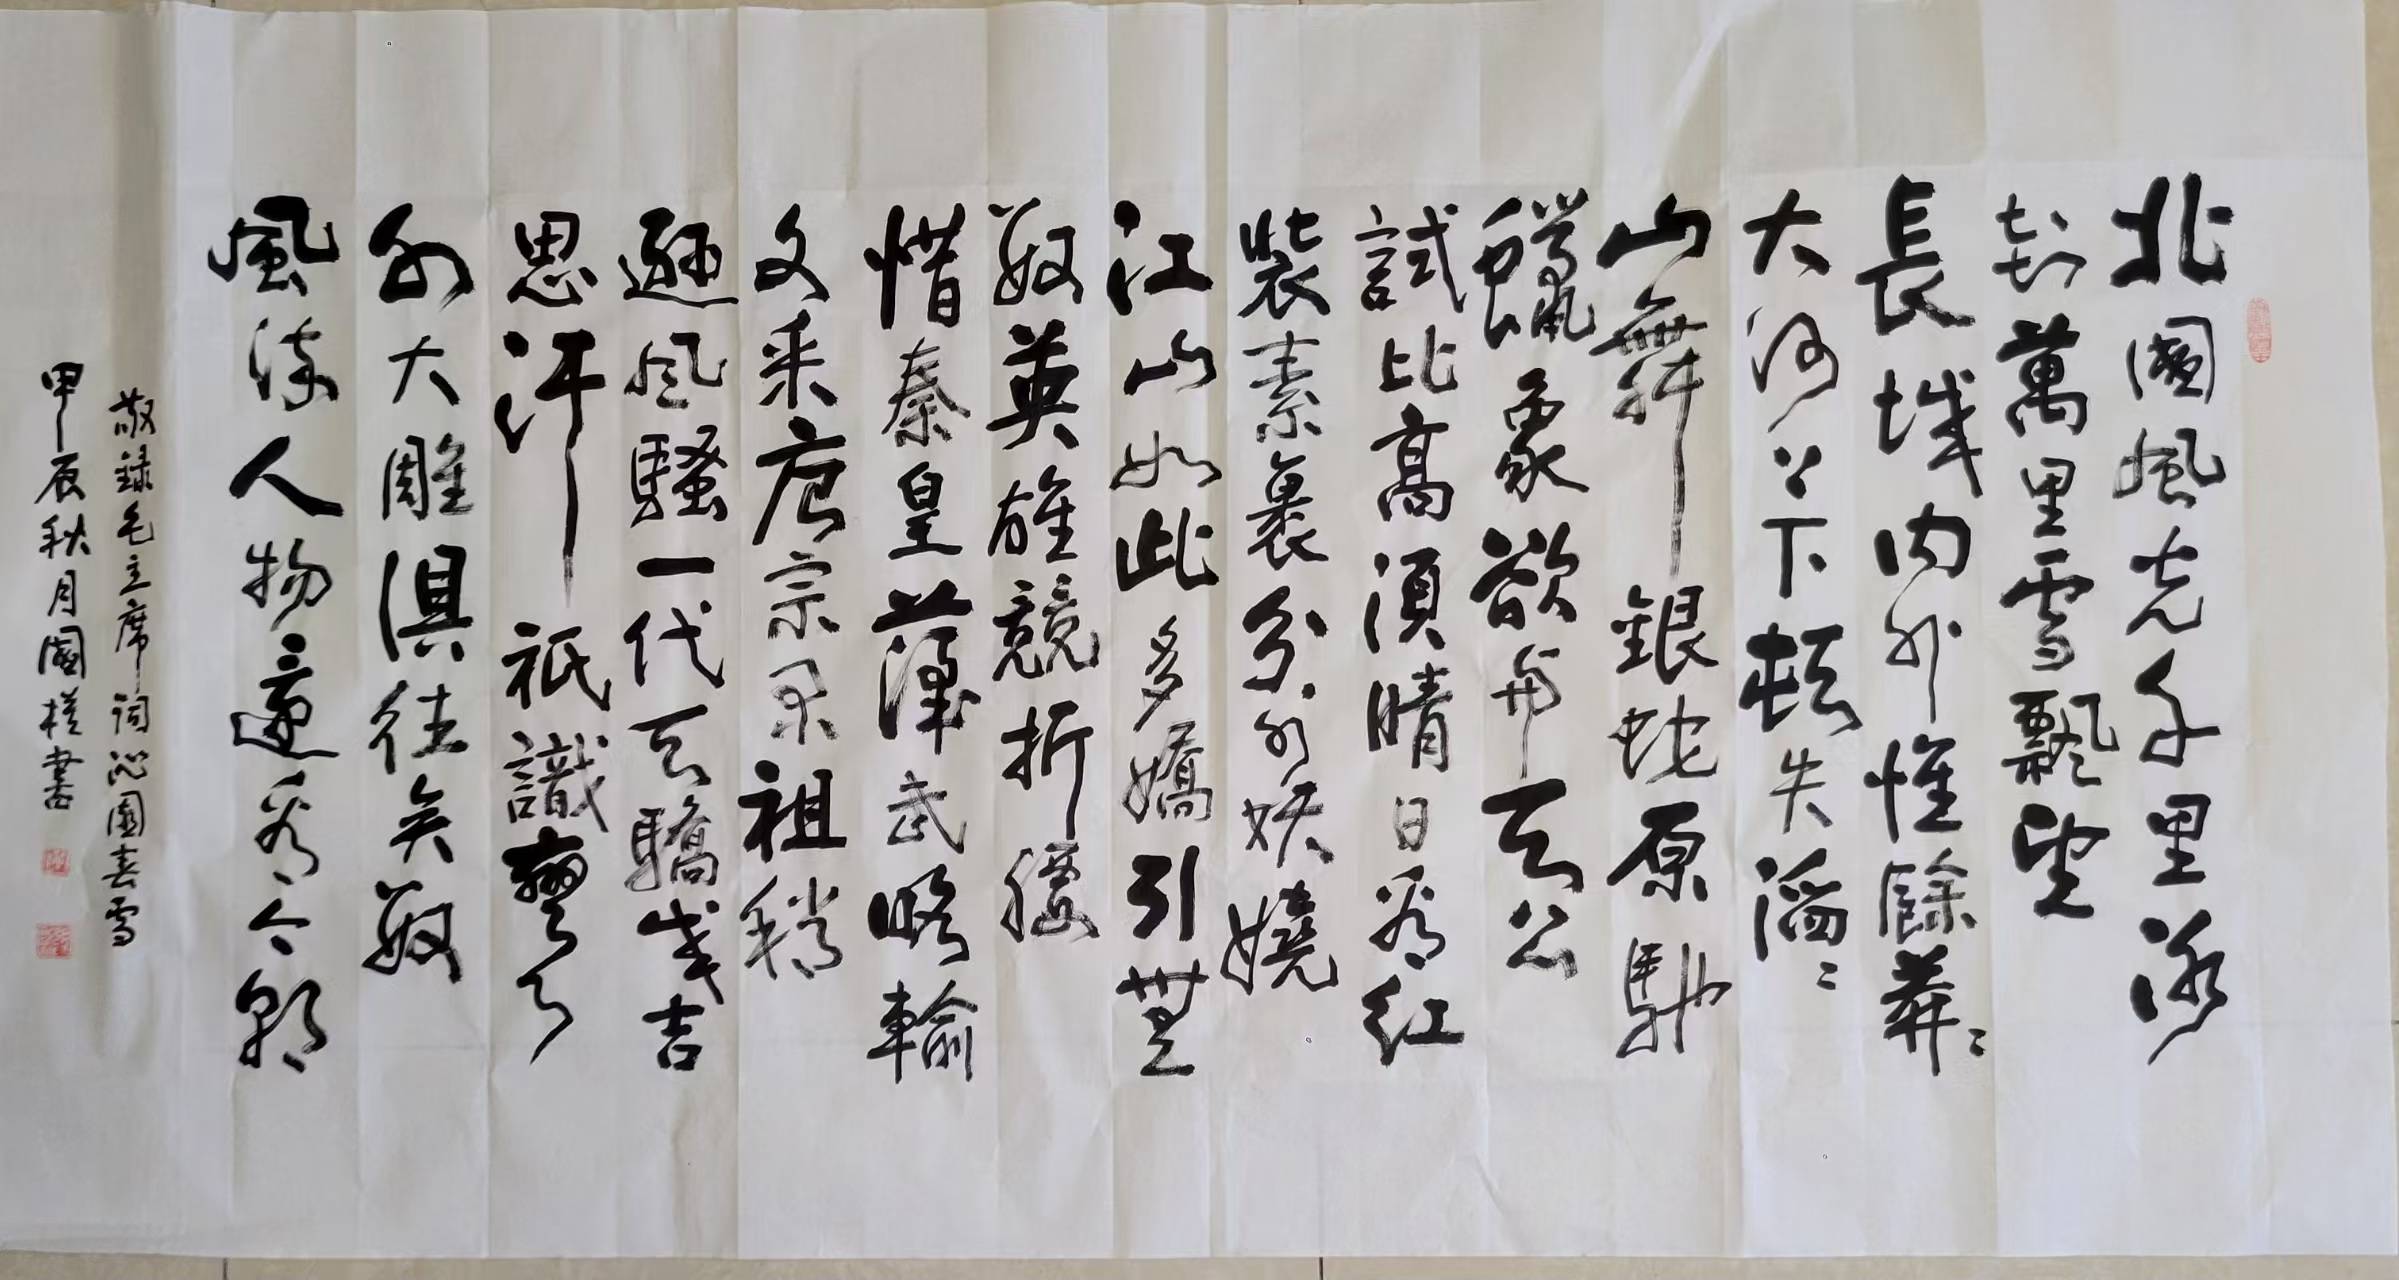 北國風光千里冰
封萬里雪飄望
長城内外惟餘莽〻
大河上下頓失滔〻
山舞銀蛇原馳
蠟象欲與天公
試比高須晴日看紅
裝素裹分外妖嬈
江山如此多嬌引無
數英雄競折腰
惜秦皇漢武略輸
文采唐宗宋祖稍
遜風騷一代天驕成吉
思汗祇識彎弓
射大雕俱往矣數
風流人物還看今朝
敬録毛主席詞沁園春雪
甲辰秋月國書